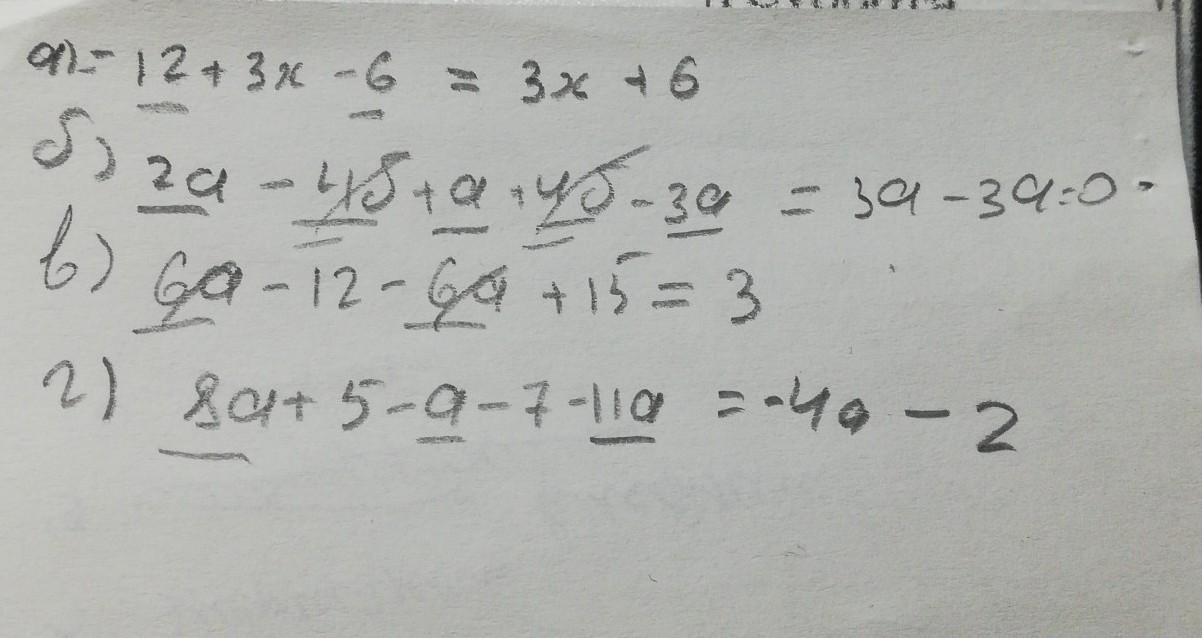 а) - 12 + 3x - 6 = 3x + 6
б) 2a - 4б + a + 4б - 3a = 3a - 3a = 0.
в) 6a - 12 - 6a + 15 = 3
г) 8a + 5 - a - 7 - 11a = -4a - 2